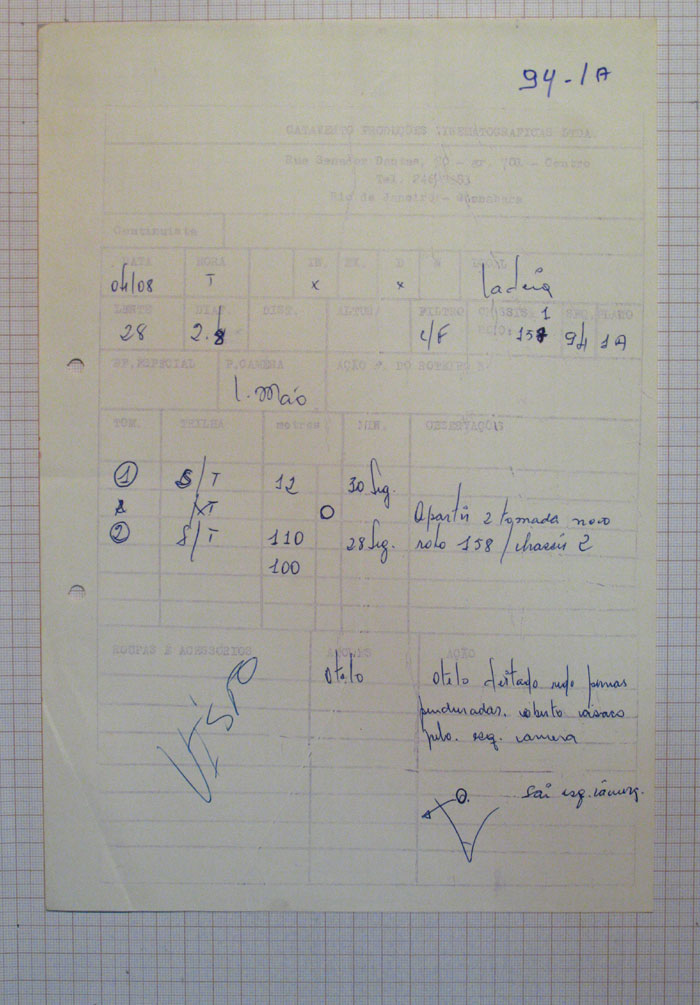 94-1A
CATAVENTO PRODUÇÕES CINEMATOGRAFICAS LTDA
Rua Senador Dantas, - gr. 701 - Centro
Tel.
Rio de Janeiro - Guanabara
Continuista
DATA HORA IN. EX. D N LOCAL
04/08 T x x
LENTE DIAF. DIST. ALTUR. FILTRO CHASSIS: 1 SEQ. PLANO
28 2.8 c/F ROLO: 157 94 1A
EF. ESPECIAL P. CAMERA AÇÃO P. DO ROTEIRO
1. Mão
TOM. TRILHA metros MIN. OBSERVAÇÕES
1 S/T 12 30 Seg.
O Apartir 2 tomada novo
2 S/T 110 28 Seg. rolo 158 / chassis 2
100
ROUPAS E ACESSÓRIOS ATORES AÇÃO
VISTO
Otelo Otelo deitado rede pernas
penduradas. coberto
pelo. esq. camera
O. Sai esq. câmera.